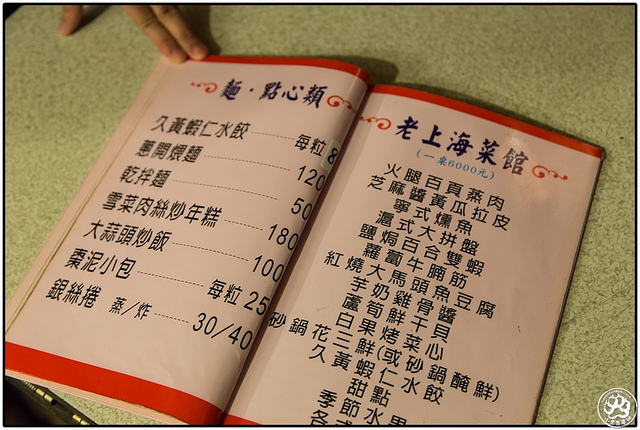 麵．點心類
久黃蝦仁水餃 每粒8
蔥開煨麵 120
乾拌麵 50
雪菜肉絲炒年糕 180
大蒜頭炒飯 100
棗泥小包 每粒25
銀絲捲 蒸／炸 30/40
老上海菜館
(一桌6000元)
火腿百頁蒸肉
芝麻醬黃瓜拉皮
寧式燻魚
滬式大拼盤
鹽焗百合雙蝦
蘿蔔牛腩筋
紅燒大馬頭魚豆腐
芋奶雞骨醬
蘆筍鮮干貝
白果烤菜心
砂鍋花三鮮(或砂鍋醃鮮)
久黃蝦仁水餃
甜點
季節水果